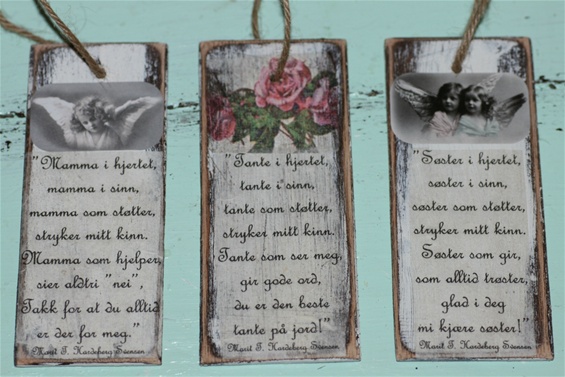 "Mamma i hjertet,
mamma i sinn,
mamma som støtter,
stryker mitt kinn.
Mamma som hjelper,
sier aldri "nei",
Takk for at du alltid
er der for meg."
Marit T. Hardeberg Svensen
"Tante i hjertet,
tante i sinn,
tante som støtter,
stryker mitt kinn.
Tante som ser meg,
gir gode ord,
du er den beste
tante på jord!"
Marit T. Hardeberg Svensen
"Søster i hjertet,
søster i sinn,
søster som støtter,
stryker mitt kinn.
Søster som gir,
som alltid trøster,
glad i deg
mi kjære søster!"
Marit T. Hardeberg Svensen